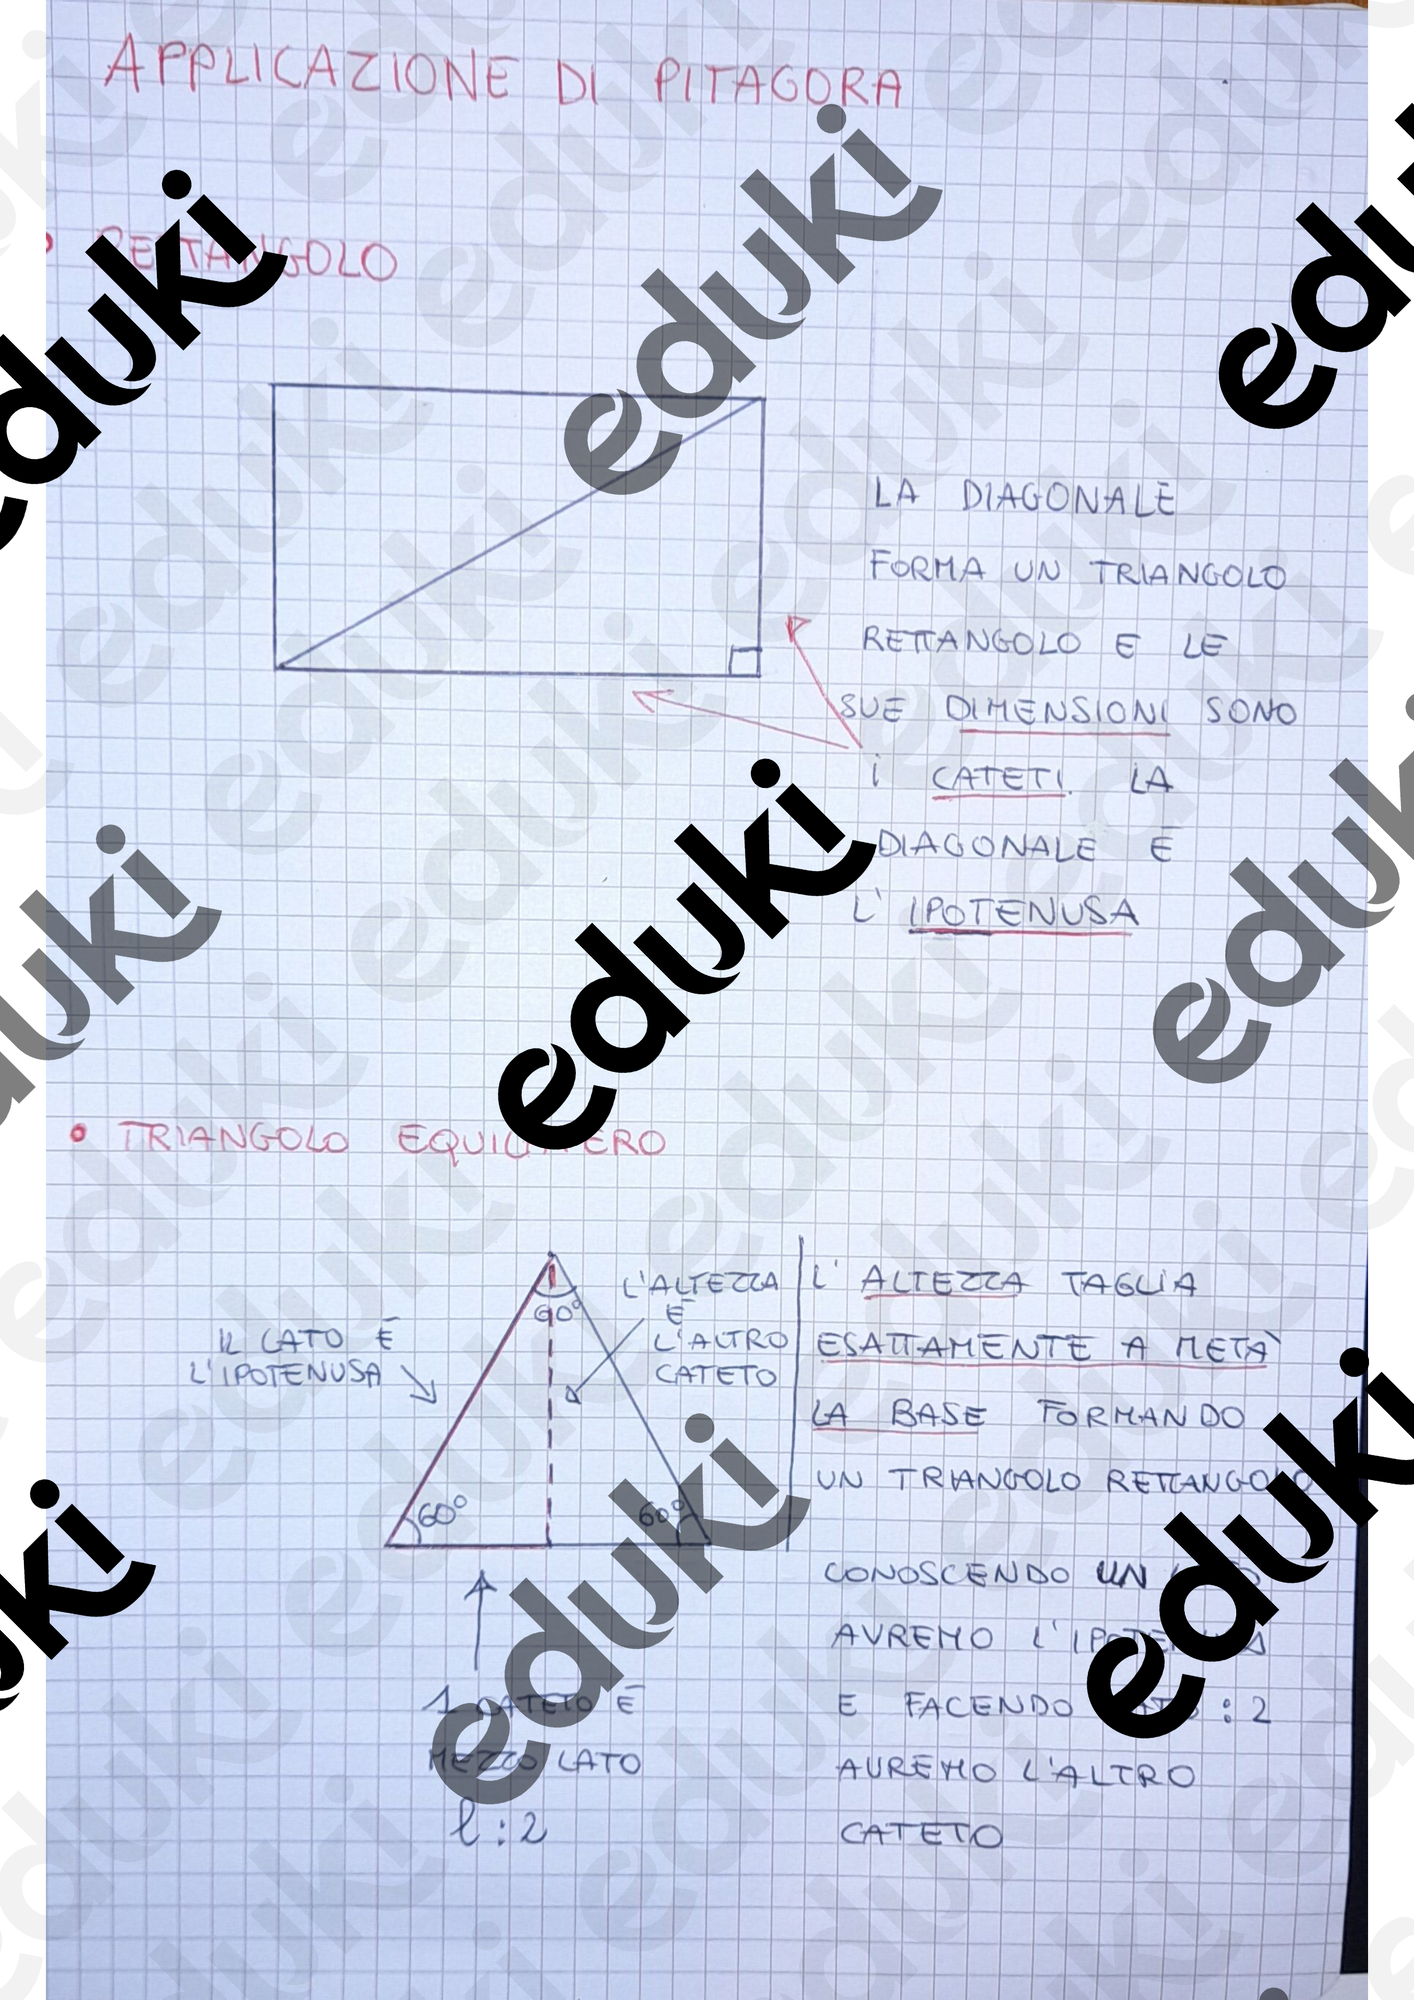 APPLICAZIONE DI PITAGORA
RETTANGOLO
LA DIAGONALE
FORMA UN TRIANGOLO
RETTANGOLO E LE
SUE DIMENSIONI SONO
I CATETI. LA
DIAGONALE È
L'IPOTENUSA
• TRIANGOLO EQUILATERO
IL LATO È
L'IPOTENUSA
L'ALTEZZA
È
L'ALTRO
CATETO
60°
60°
60°
1 CATETO È
MEZZO LATO
l : 2
L'ALTEZZA TAGLIA
ESATTAMENTE A METÀ
LA BASE FORMANDO
UN TRIANGOLO RETTANGOLO
CONOSCENDO UN
AVREMO L'IPOTENUSA
E FACENDO : 2
AVREMO L'ALTRO
CATETO
eduki
eduki
eduki
eduki
eduki
eduki
eduki
eduki
eduki